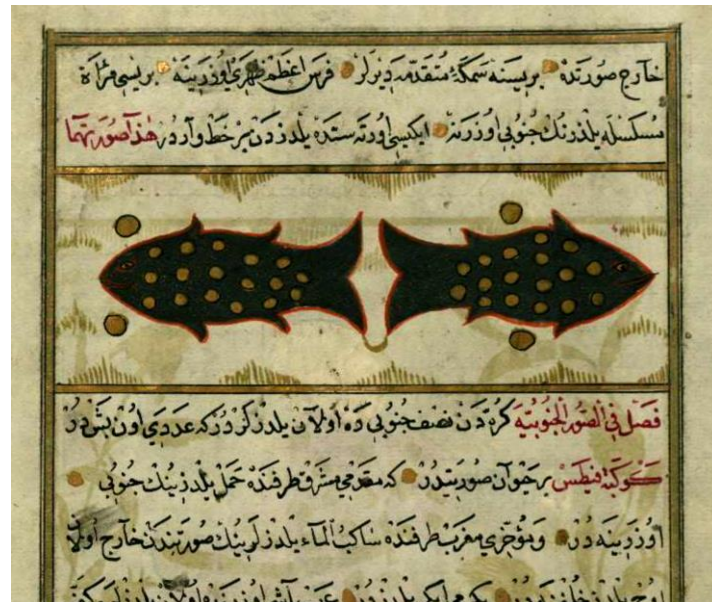 خارج صورتده بریسنه سمكهٔ متقدمه دیرلر فرس اعظم ظهری اوزرینه بریسی مرأة
مسلسله یلدزنك جنوبی اوزرنه ایكیسی اورته سنده یلدزدن بر خط واردر هذا صورتهما
فصل فی الصور الجنوبیة كره‌دن نصف جنوبی ده اولان یلدزلردر كه عددی اون بش در
كوكبة قیطس بر حیوان صورتیدر كه مقدمی مشرق طرفنده حمل یلدزینك جنوبی
اوزرینه در ومؤخری مغرب طرفنده ساكب الماء یلدزلرینك صورتیندن خارج اولان